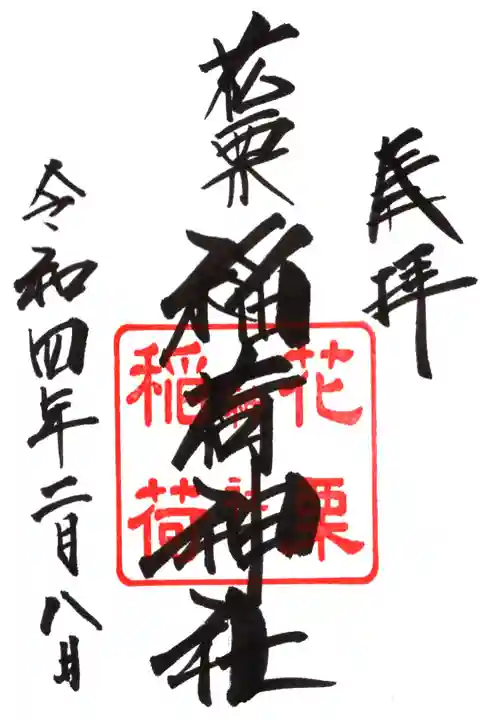 奉拝
花栗稲荷神社
花栗
稲荷
令和四年二月八日